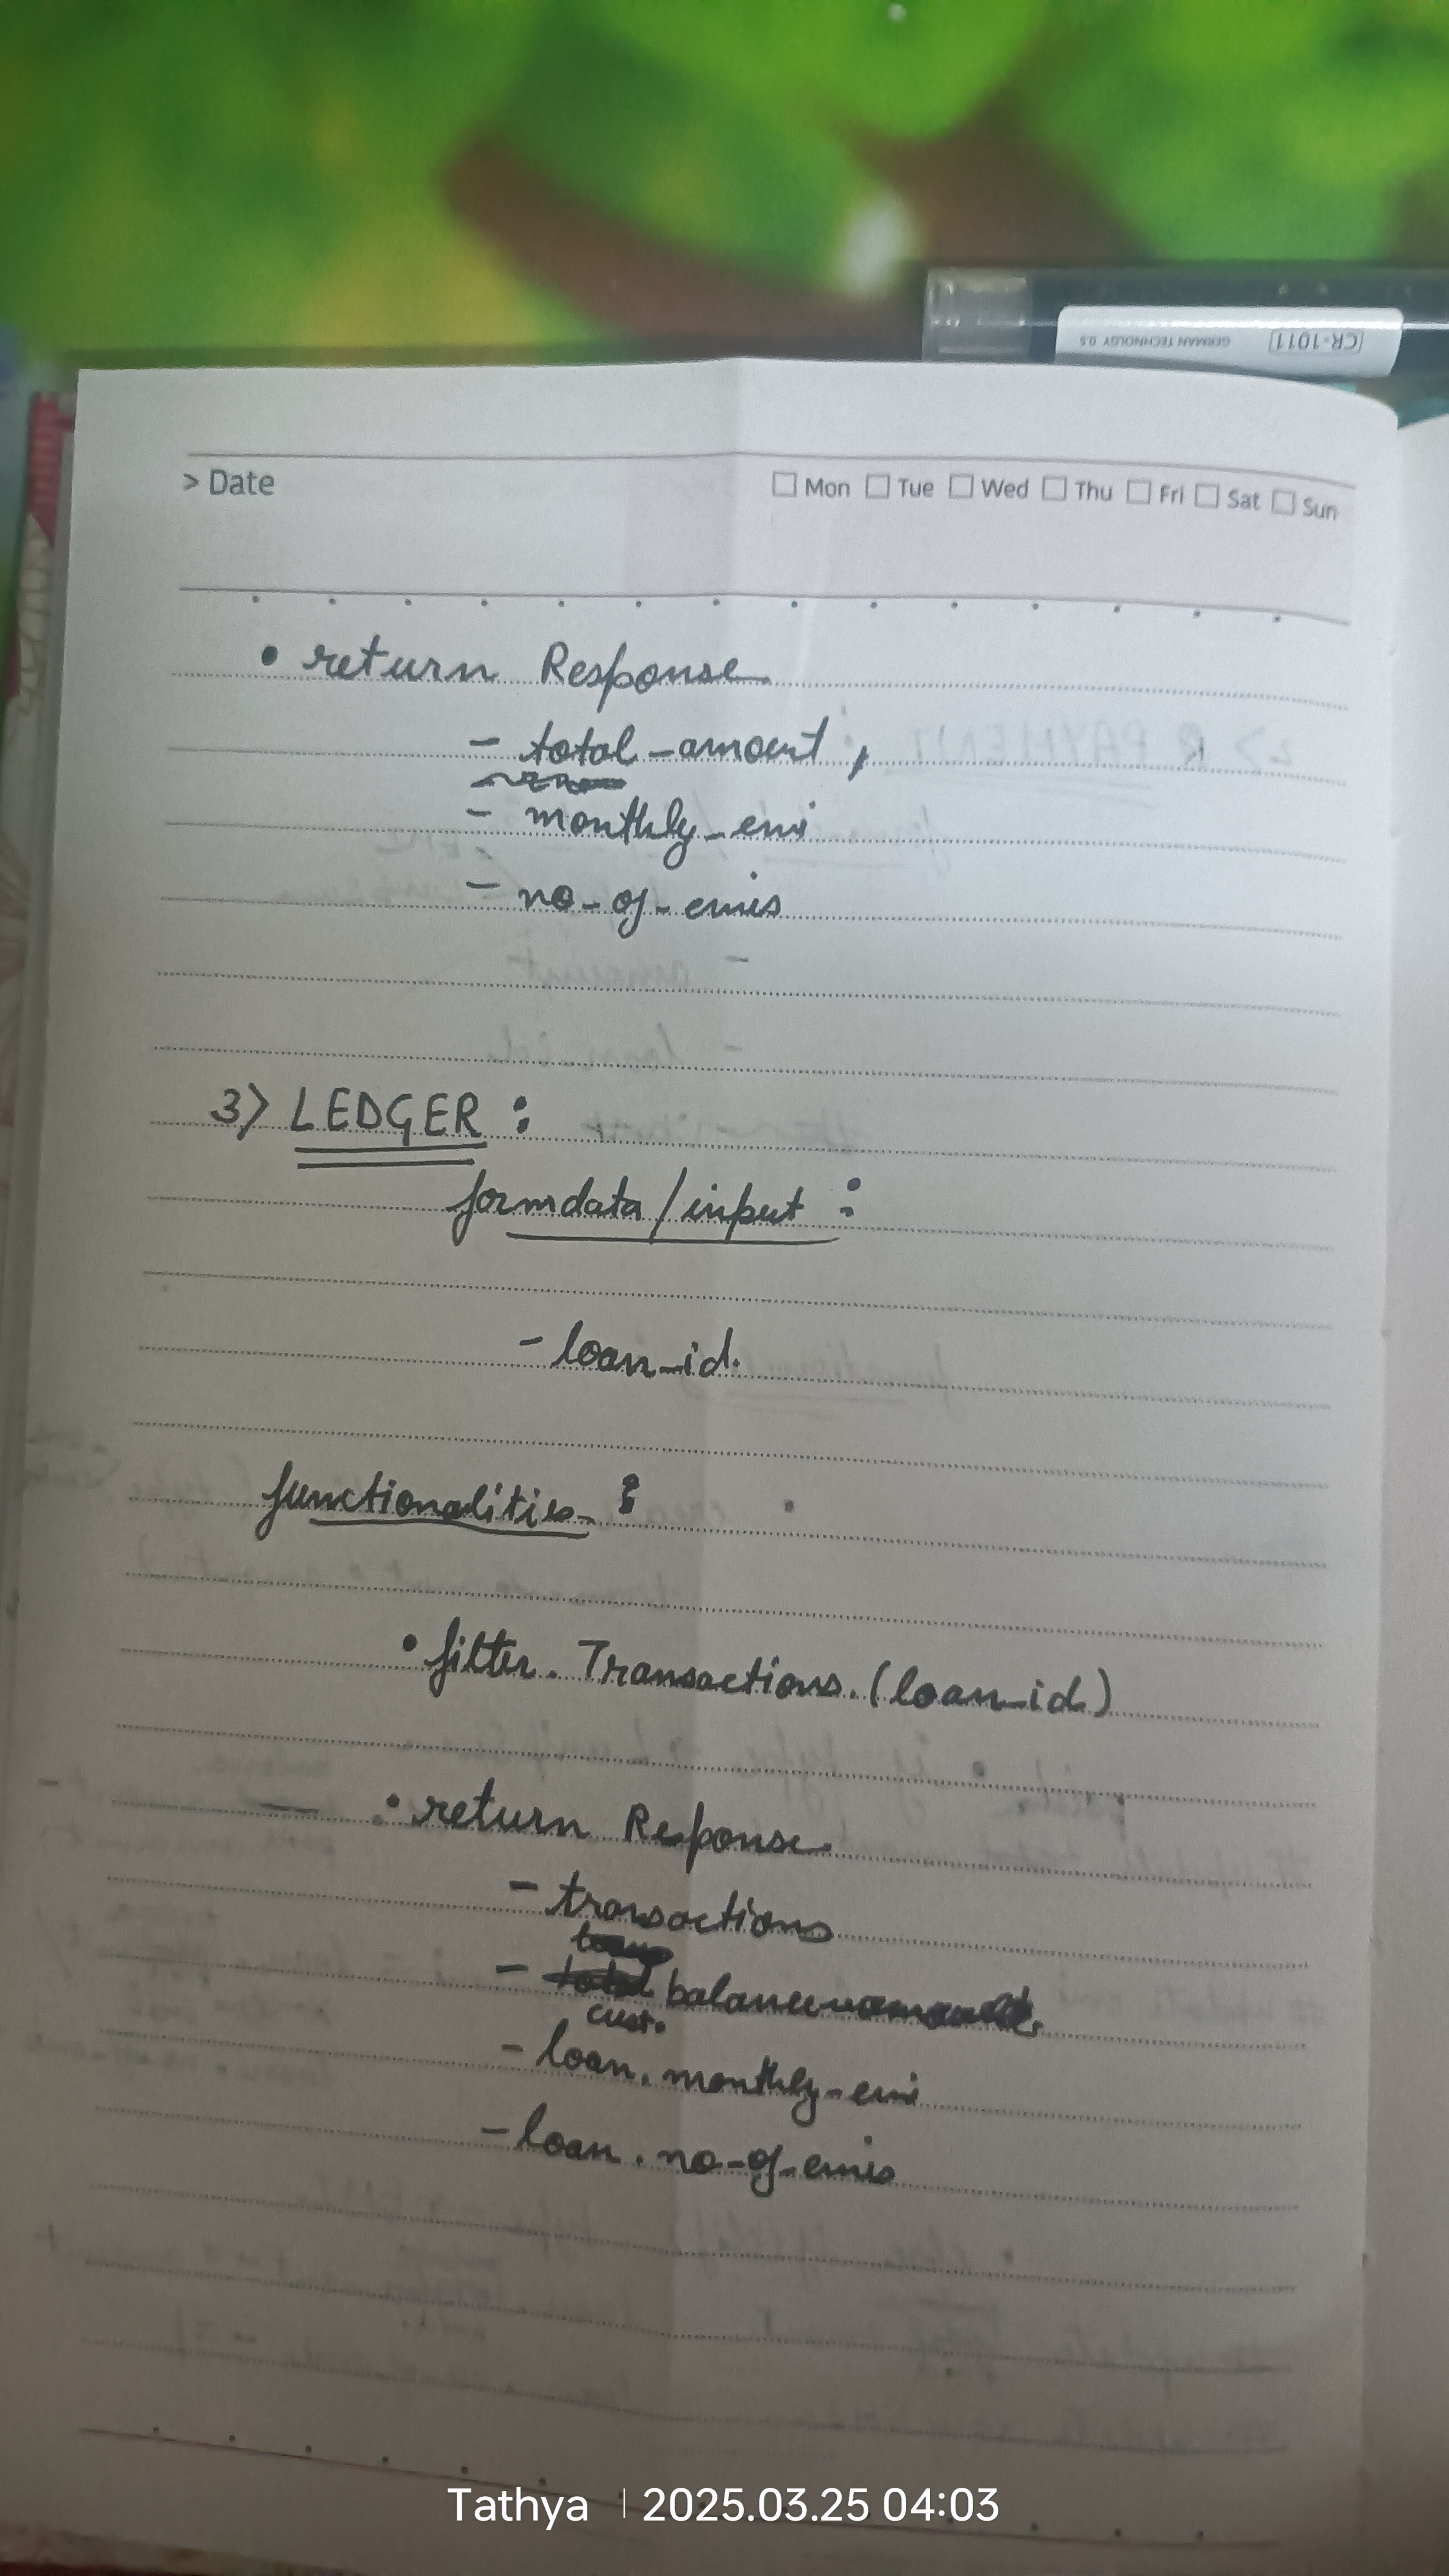 CR-1011
GERMAN TECHNOLGY 0.5
> Date Mon Tue Wed Thu Fri Sat Sun
• return Response
- total_amount,
- monthly_emi
- no_of_emis
3> LEDGER :
formdata/input :
- loan_id.
functionalities :
• filter. Transactions.(loan_id)
• return Reponse.
- transactions
- balance
cust.
- loan. monthly_emi
- loan. no_of_emis
Tathya | 2025.03.25 04:03